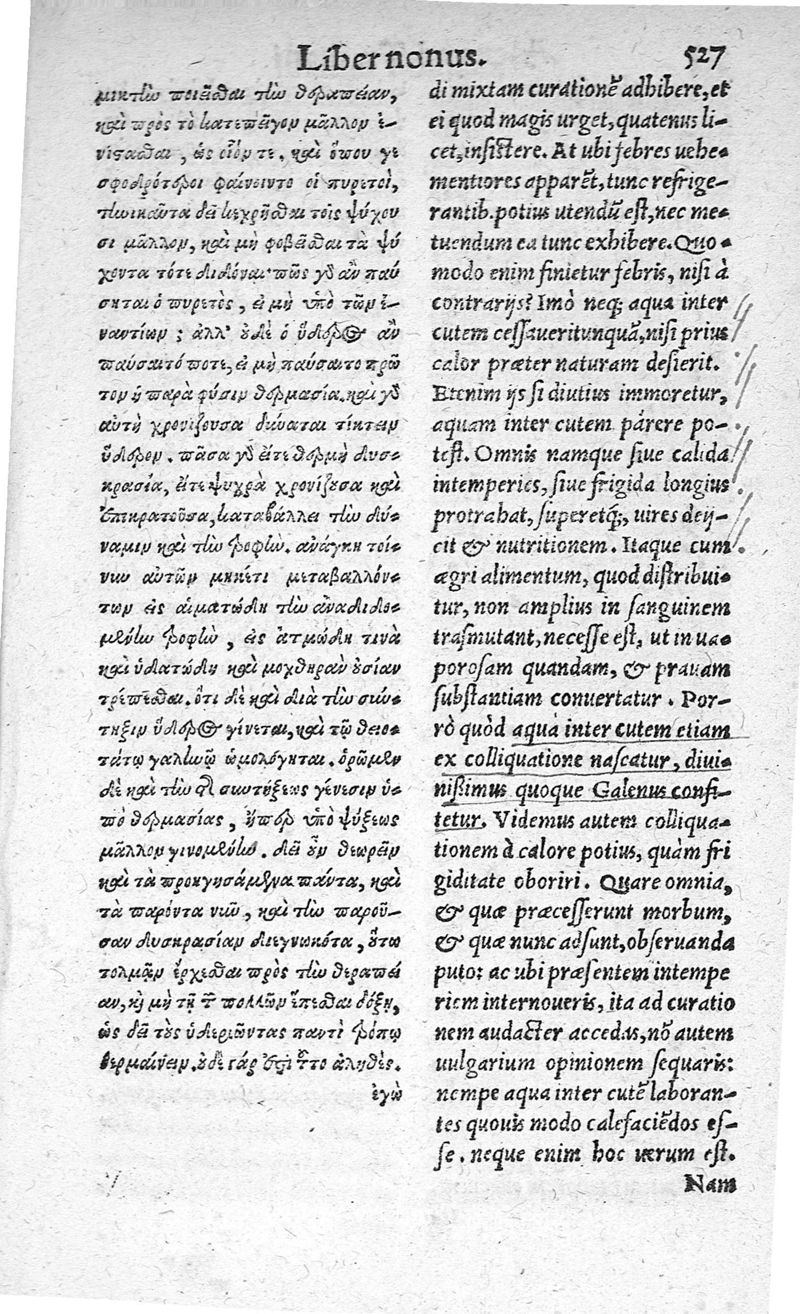 Liber nonus. 527
μικτὴν ποιεῖσθαι τὴν θεραπείαν,
καὶ πρὸς τὸ κατεπεῖγον μᾶλλον ἐ-
νίστασθαι, ὡς οἷόν τε. καὶ ὅπου γε
σφοδρότεροι φαίνοιντο οἱ πυρετοὶ,
τηνικαῦτα δεῖ κεχρῆσθαι τοῖς ψύχου
σι μᾶλλον, καὶ μὴ φοβεῖσθαι τὰ ψύ
χοντα τότε διδόναι· πῶς γὸ ἂν παύ
σηται ὁ πυρετὸς, εἰ μὴ ὑπὸ τῶν ἐ-
ναντίων; ἀλλ' οὐδὲ ὁ ὕδερος ἂν
παύσαιτό ποτε, εἰ μὴ παύσαιτο πρῶ
τον ἡ παρὰ φύσιν θερμασία. καὶ γὸ
αὐτὴ χρονίζουσα δύναται τίκτειν
ὕδερον. πᾶσα γὸ εἴτε θερμὴ δυσ-
κρασία, εἴτε ψυχρὰ χρονίζουσα καὶ
ἐπικρατοῦσα, καταβάλλει τὴν δύ-
ναμιν καὶ τὴν θρέψιν. ἀνάγκη τοί-
νυν αὐτῶν μηκέτι μεταβαλλόν-
των εἰς αἱματώδη τὴν ἀναδιδο-
μένην τροφὴν, εἰς ἀτμώδη τινὰ
καὶ ὑδατώδη καὶ μοχθηρὰν οὐσίαν
τρέπεσθαι. ὅτι δὲ καὶ διὰ τὴν σύν-
τηξιν ὕδερος γίνεται, καὶ τῷ θειο-
τάτῳ γαληνῷ ὡμολόγηται. ὁρῶμεν
δὲ καὶ τὴν τῆς συντήξεως γένεσιν ὑ-
πὸ θερμασίας, ἤπερ ὑπὸ ψύξεως
μᾶλλον γινομένην. δεῖ οὖν θεωρεῖν
καὶ τὰ προηγησάμενα πάντα, καὶ
τὰ παρόντα νῦν, καὶ τὴν παροῦ-
σαν δυσκρασίαν διεγνωκότα, οὕτω
τολμᾶν ἔρχεσθαι πρὸς τὴν θεραπεί
αν, κὶ μὴ τῇ τῶν πολλῶν ἕπεσθαι δόξῃ,
ὡς δεῖ τοὺς ὑδεριῶντας παντὶ τρόπῳ
θερμαίνειν. οὐδὲ γάρ ἐστι τοῦτο ἀληθές.
ἐγὼ
di mixtam curationẽ adhibere, et
ei quod magis urget, quatenus li-
cet, insistere. At ubi febres uehe-
mentiores apparẽt, tunc refrige-
rantib. potius utendũ est, nec me-
tuendum ea tunc exhibere. Quo-
modo enim finietur febris, nisi à
contrarijs? Imò neq; aqua inter
cutem cessaueritunquã, nisi prius
calor præter naturam desierit.
Etenim ijs si diutius immoretur,
aquam inter cutem parere po-
test. Omnis namque siue calida
intemperies, siue frigida longius
protrahat, superetq;, uires deij-
cit & nutritionem. Itaque cum
ægri alimentum, quod distribui-
tur, non amplius in sanguinem
trãsmutant, necesse est, ut in ua-
porosam quandam, & prauam
substantiam conuertatur. Por-
rò quòd aqua inter cutem etiam
ex colliquatione nascatur, diui-
nissimus quoque Galenus confi-
tetur. Videmus autem colliqua-
tionem à calore potius, quàm fri
giditate oboriri. Quare omnia,
& quæ præcesserunt morbum,
& quæ nunc adsunt, obseruanda
puto: ac ubi præsentem intempe
riem internoueris, ita ad curatio
nem audacter accedas, nõ autem
uulgarium opinionem sequaris:
nempe aqua inter cutẽ laboran-
tes quouis modo calefaciẽdos es-
se. neque enim hoc uerum est.
Nam